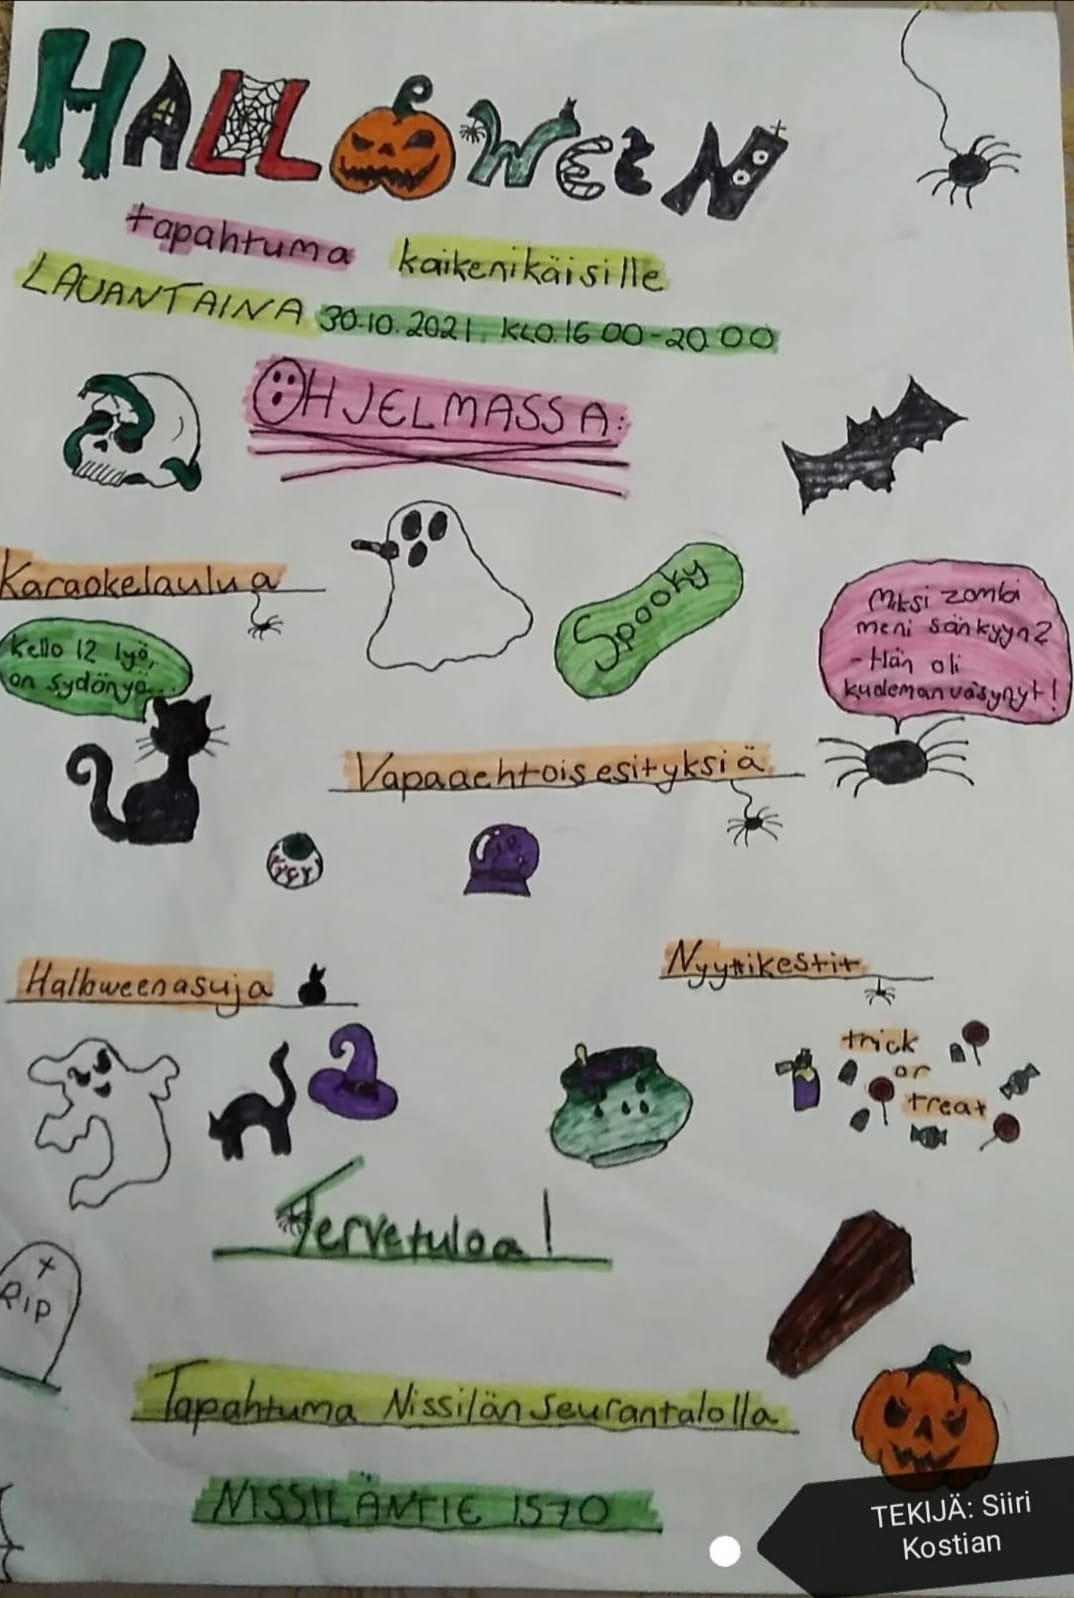 HALLOWEEN
tapahtuma kaikenikäisille
LAUANTAINA 30.10.2021, KLO.16 00-20 00
OHJELMASSA:
Karaokelaulua
Spooky
Kello 12 lyö,
on sydänyö...
Miksi zombi
meni sänkyyn?
-Hän oli
kuolemanväsynyt!
Vapaaehtoisesityksiä
Halloweenasuja
Nyyttikestit
trick
or
treat
Tervetuloa!
RIP
Tapahtuma Nissilän Seurantalolla
NISSILÄNTIE 1570
TEKIJÄ: Siiri
Kostian